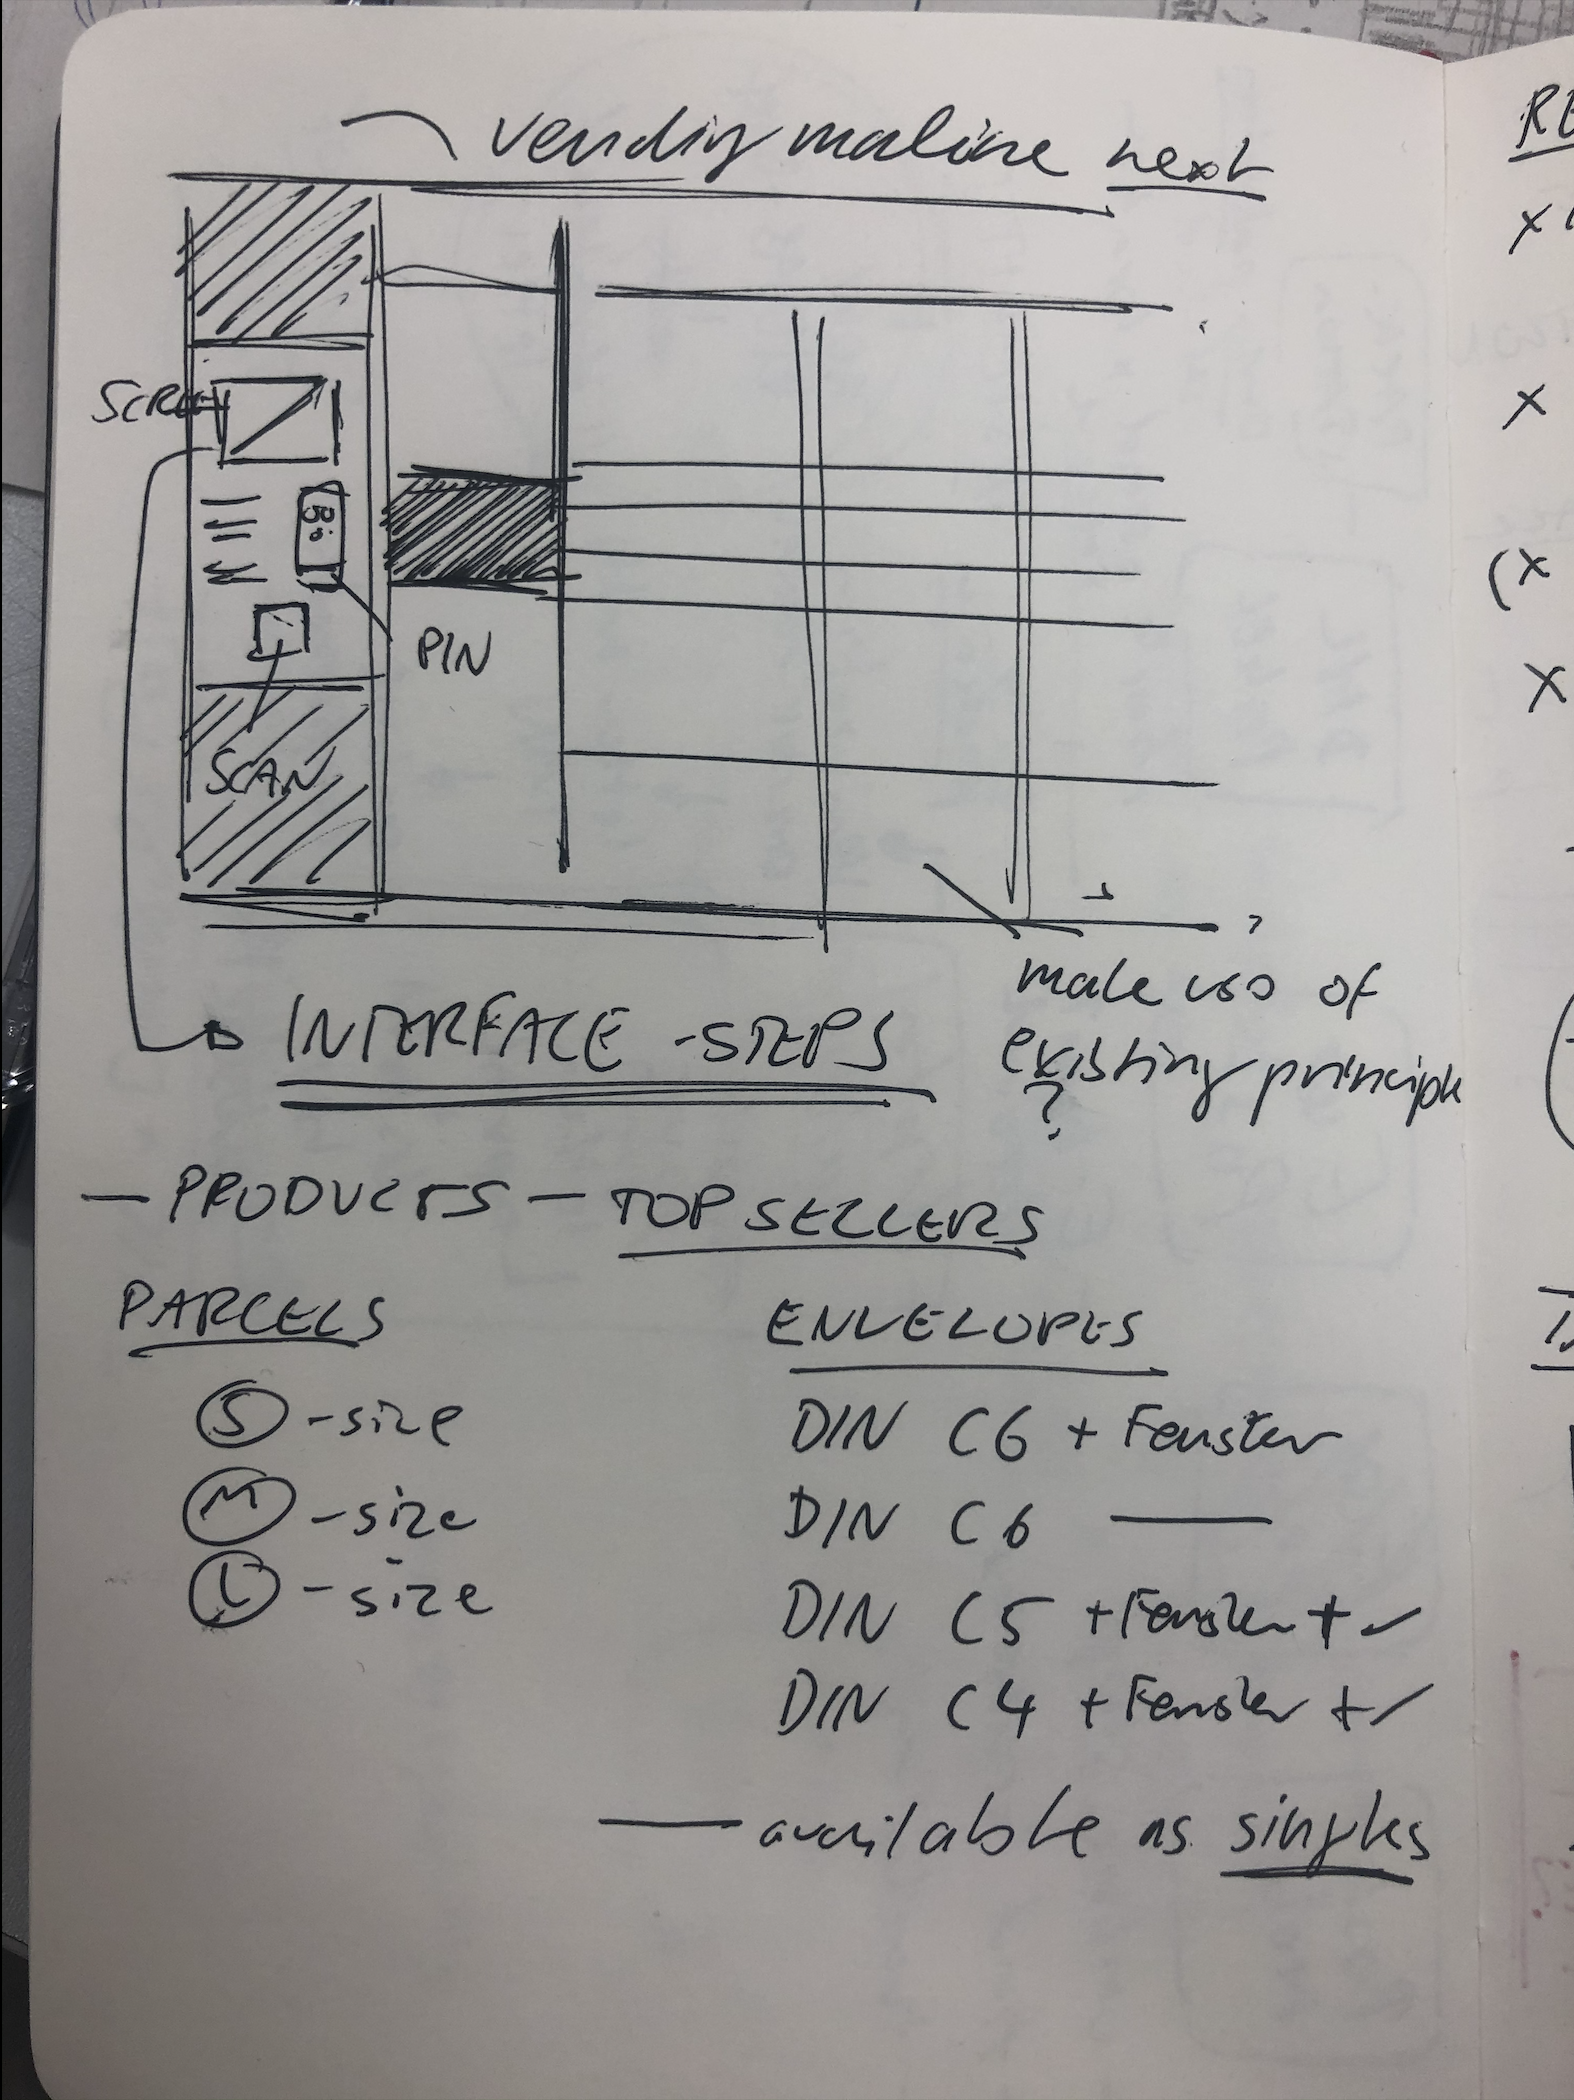 vending machine next
SCREEN
PIN
SCAN
make use of
existing principle
?
INTERFACE - STEPS
— PRODUCTS — TOP SELLERS
PARCELS
S - size
M - size
L - size
ENVELOPES
DIN C6 + Fenster
DIN C6 —
DIN C5 + Fenster + ✓
DIN C4 + Fenster + ✓
— available as singles
RE
x
x
(x
x